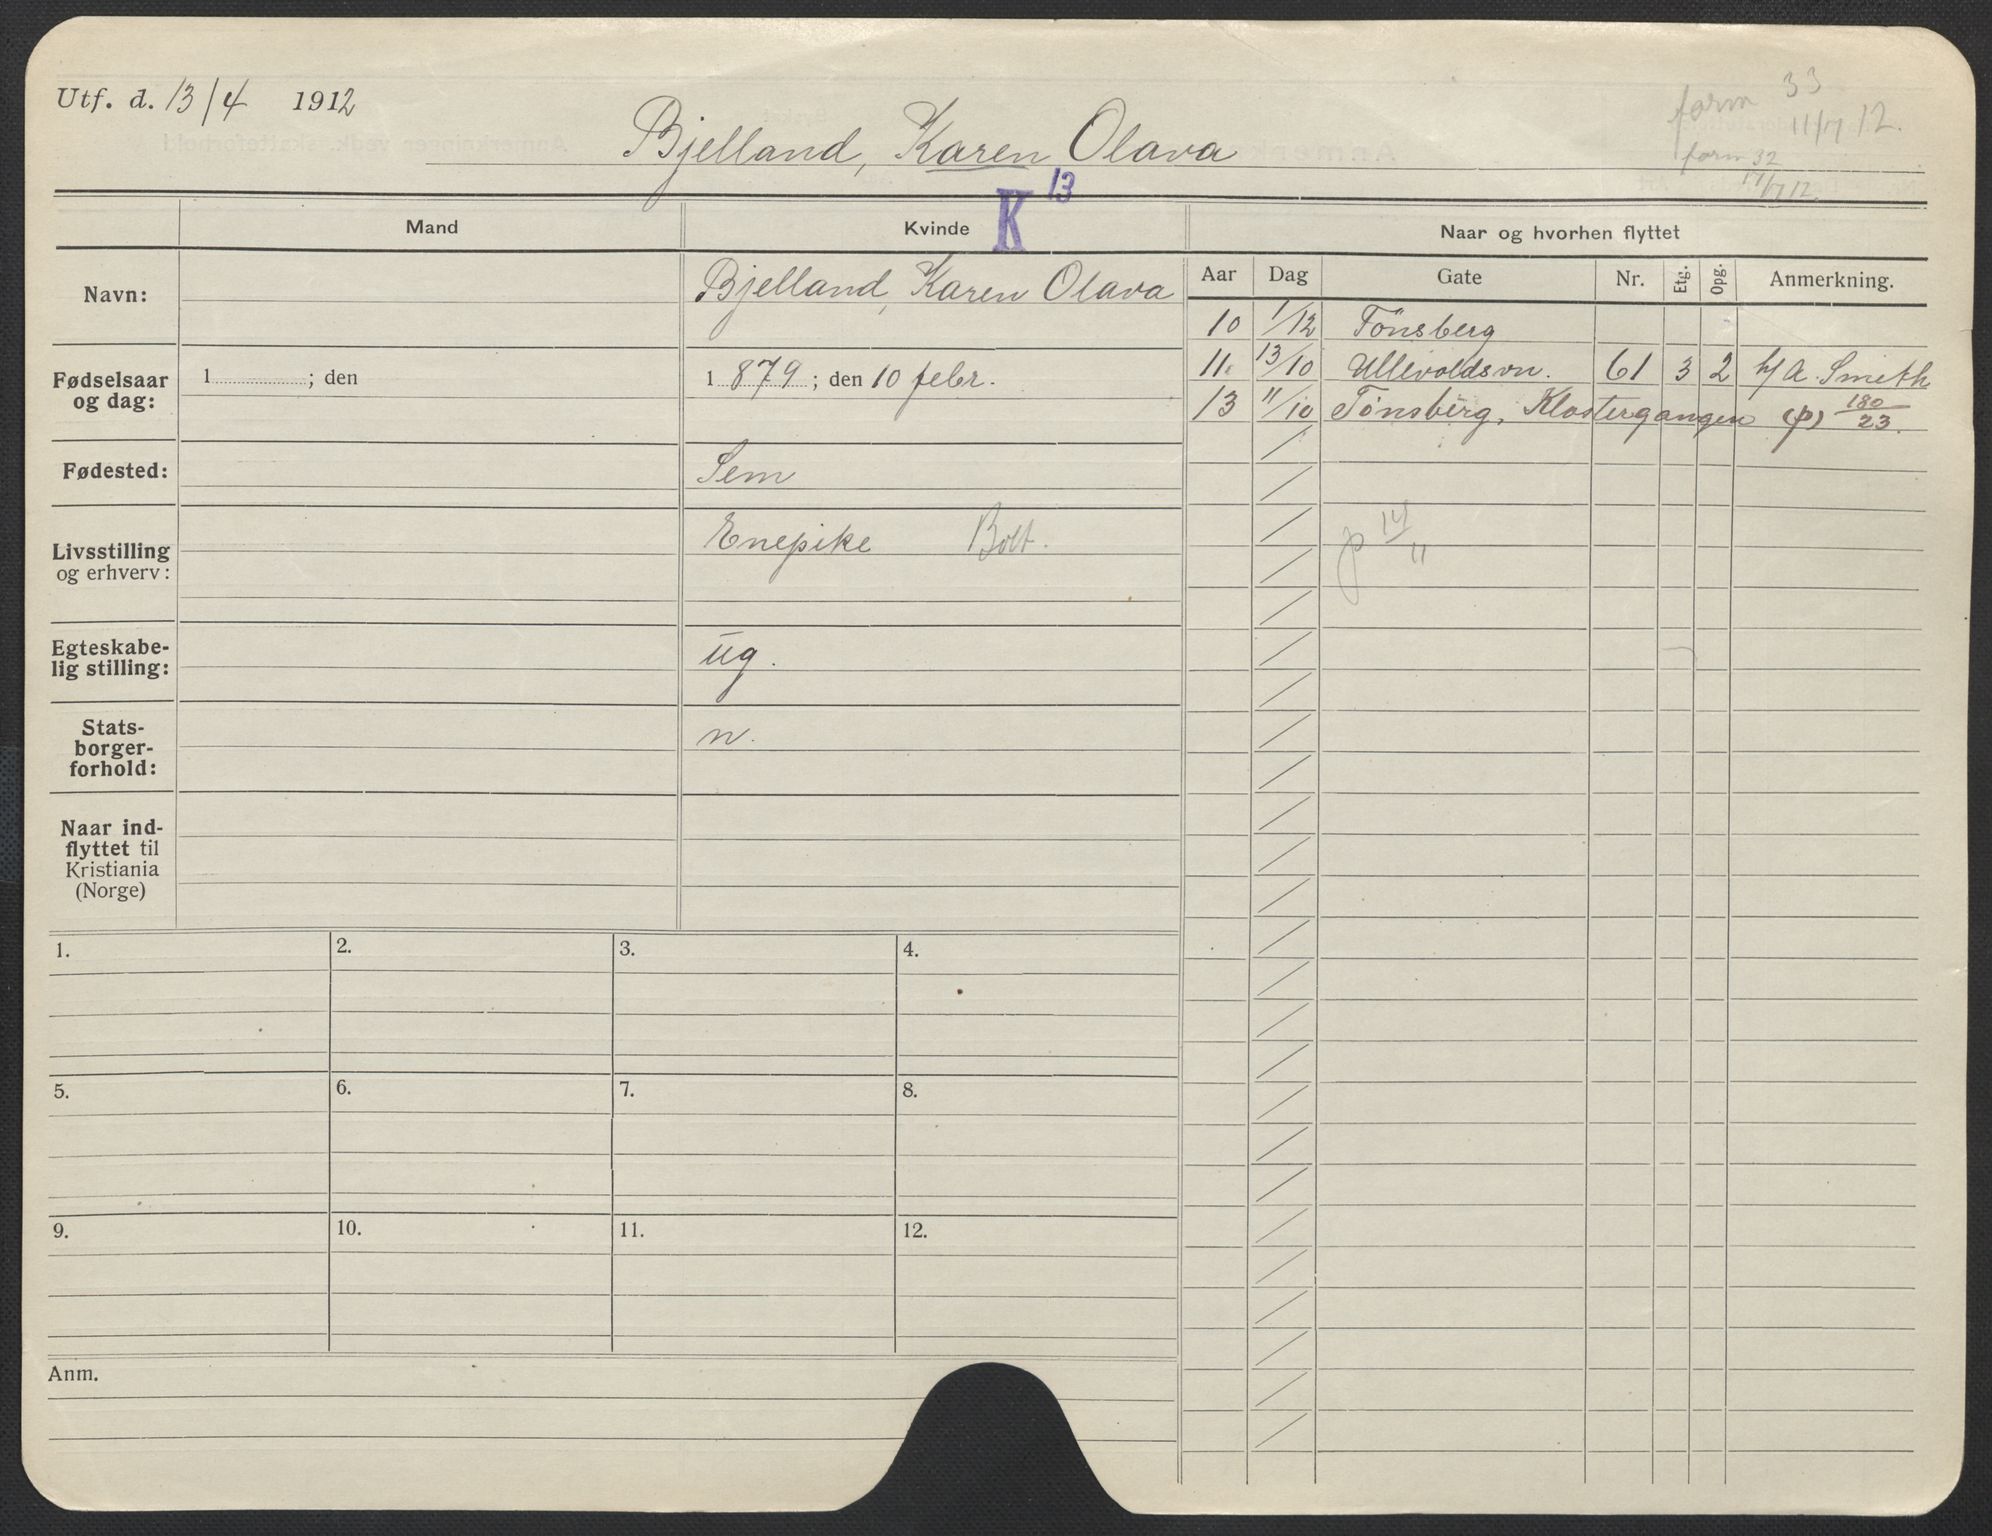 Utf. d. 13/4 1912
form 33
11/7 12.
Bjelland, Karen Olava
form 32
17/7 12.
K 13
Mand
Kvinde
Naar og hvorhen flyttet
Aar Dag Gate Nr. Etg. Opg. Anmerkning.
Navn: Bjelland, Karen Olava
10 1/12 Tönsberg
11. 13/10 Ullevoldsvn. 61 3 2 h/ A. Smith
13 11/10 Tönsberg, Klostergangen (p) 180/23.
Fødselsaar
og dag:
1 ; den
1 879 ; den 10 febr.
Fødested: Sem
Livsstilling
og erhverv:
Enepike Bolt.
p 14/11
Egteskabe-
lig stilling:
ug.
Stats-
borger-
forhold:
n.
Naar ind-
flyttet til
Kristiania
(Norge)
1. 2. 3. 4.
5. 6. 7. 8.
9. 10. 11. 12.
Anm.